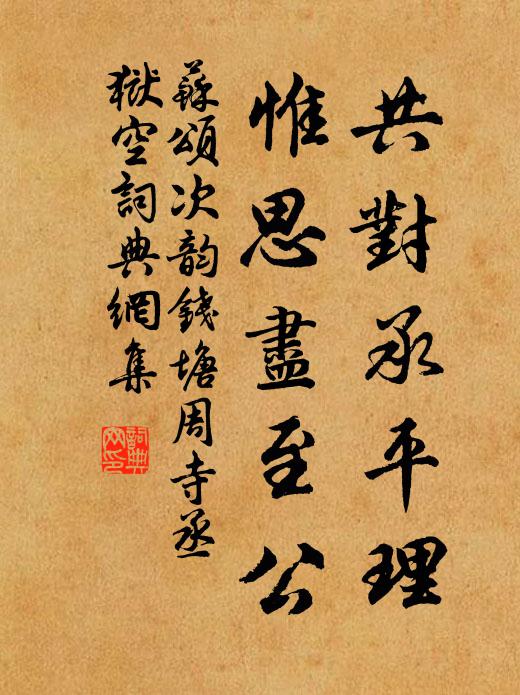 共對承平理
惟思盡至公
蘇頌次韵錢塘周寺丞
獄空詞典網集
詞典網印